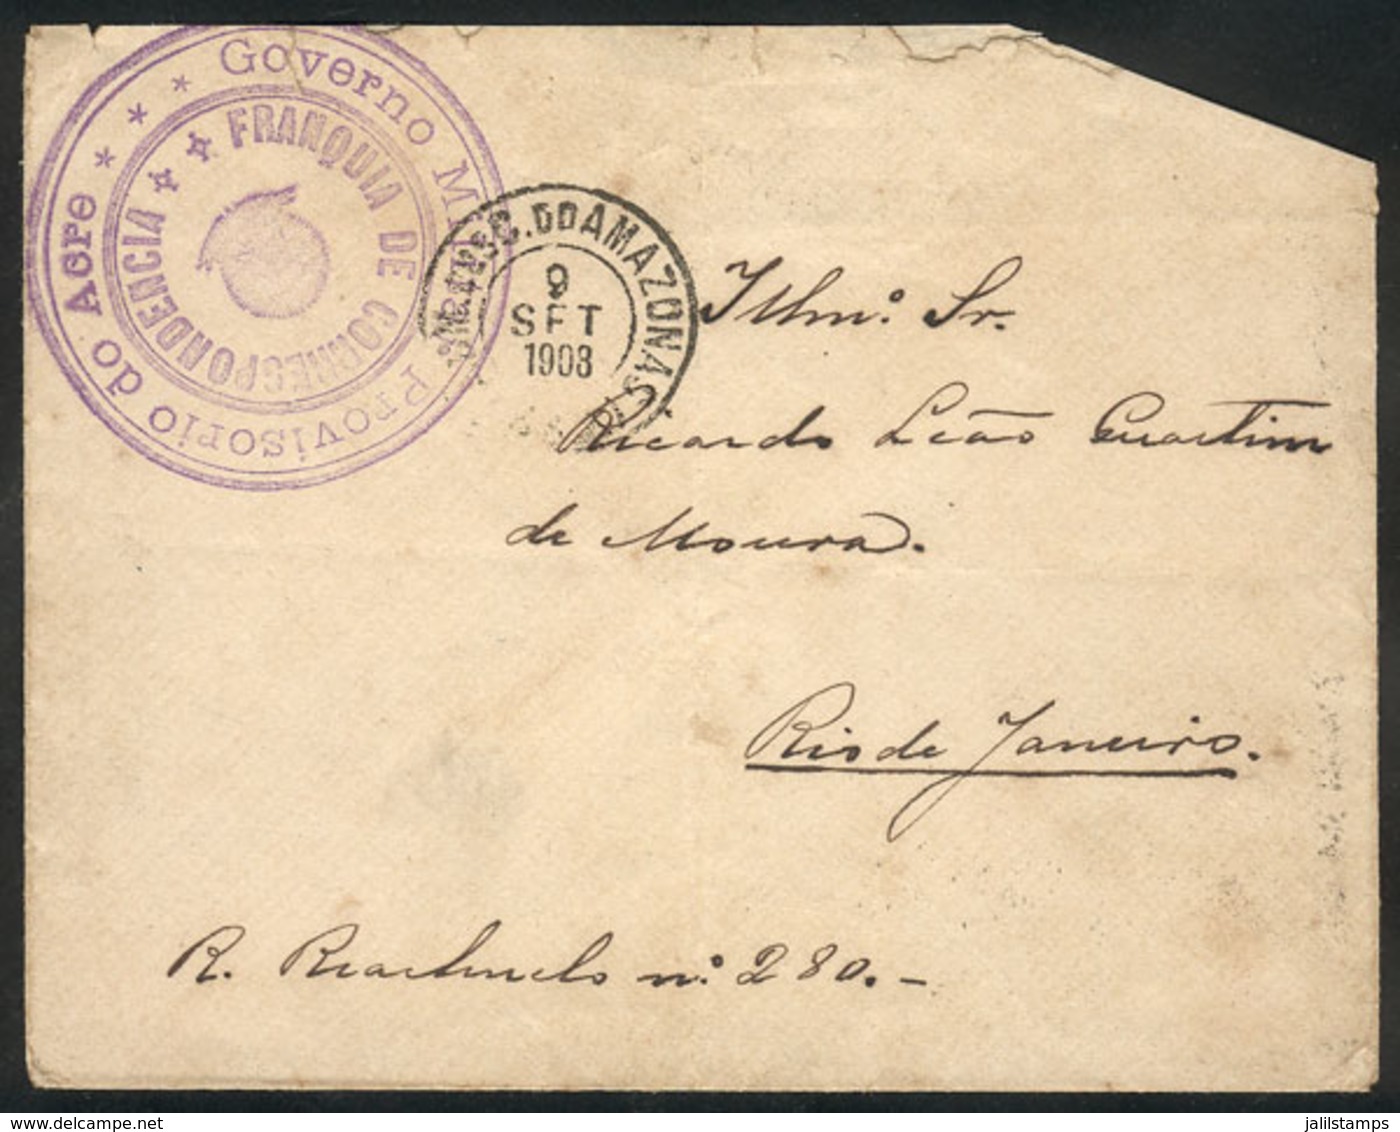 Governo Mil Provisorio do Acre
FRANQUIA DE CORRESPONDENCIA
DO AMAZONAS
9
SET
1903
Illmº. Sr.
Ricardo Leão Quartim
de Moura.
Rio de Janeiro.
R. Riachuelo nº. 280. –
jalilstamps